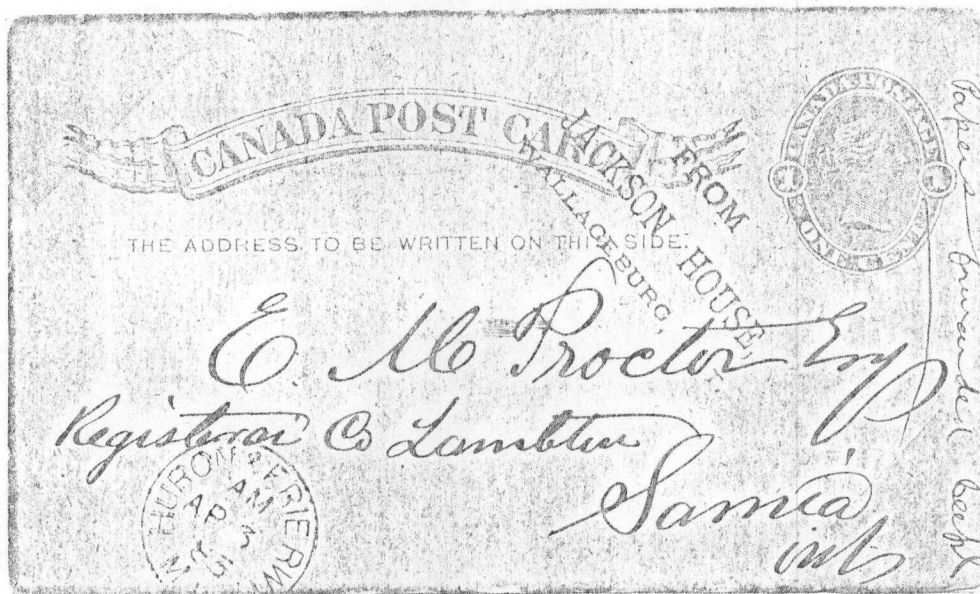 CANADA POST CARD
FROM
JACKSON HOUSE,
WALLACEBURG,
THE ADDRESS TO BE WRITTEN ON THIS SIDE
E. M Proctor Esq
Registrar Co Lambton
Sarnia
Ont
HURON & ERIE RW
AM
AP 3
M
Papers